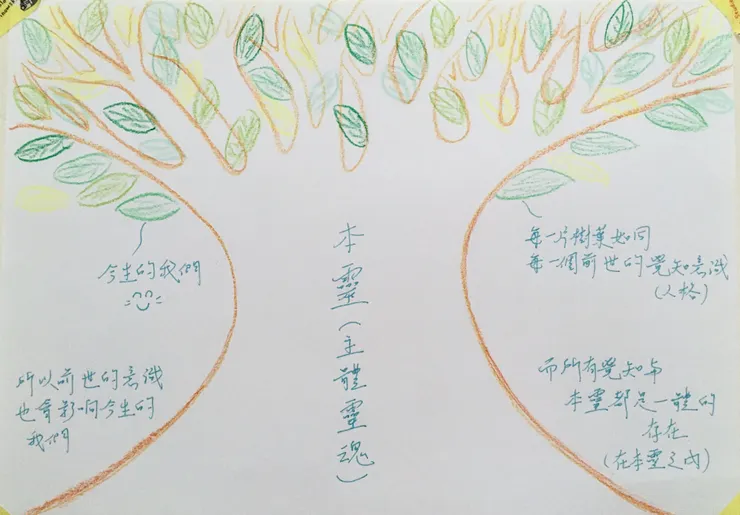 今生的我們
所以前世的意識
也會影响今生的
我們
本靈(主體靈魂)
每一片樹葉如同
每一個前世的覺知意識
(人格)
而所有覺知与
本靈都是一體的
存在
(在本靈之內)